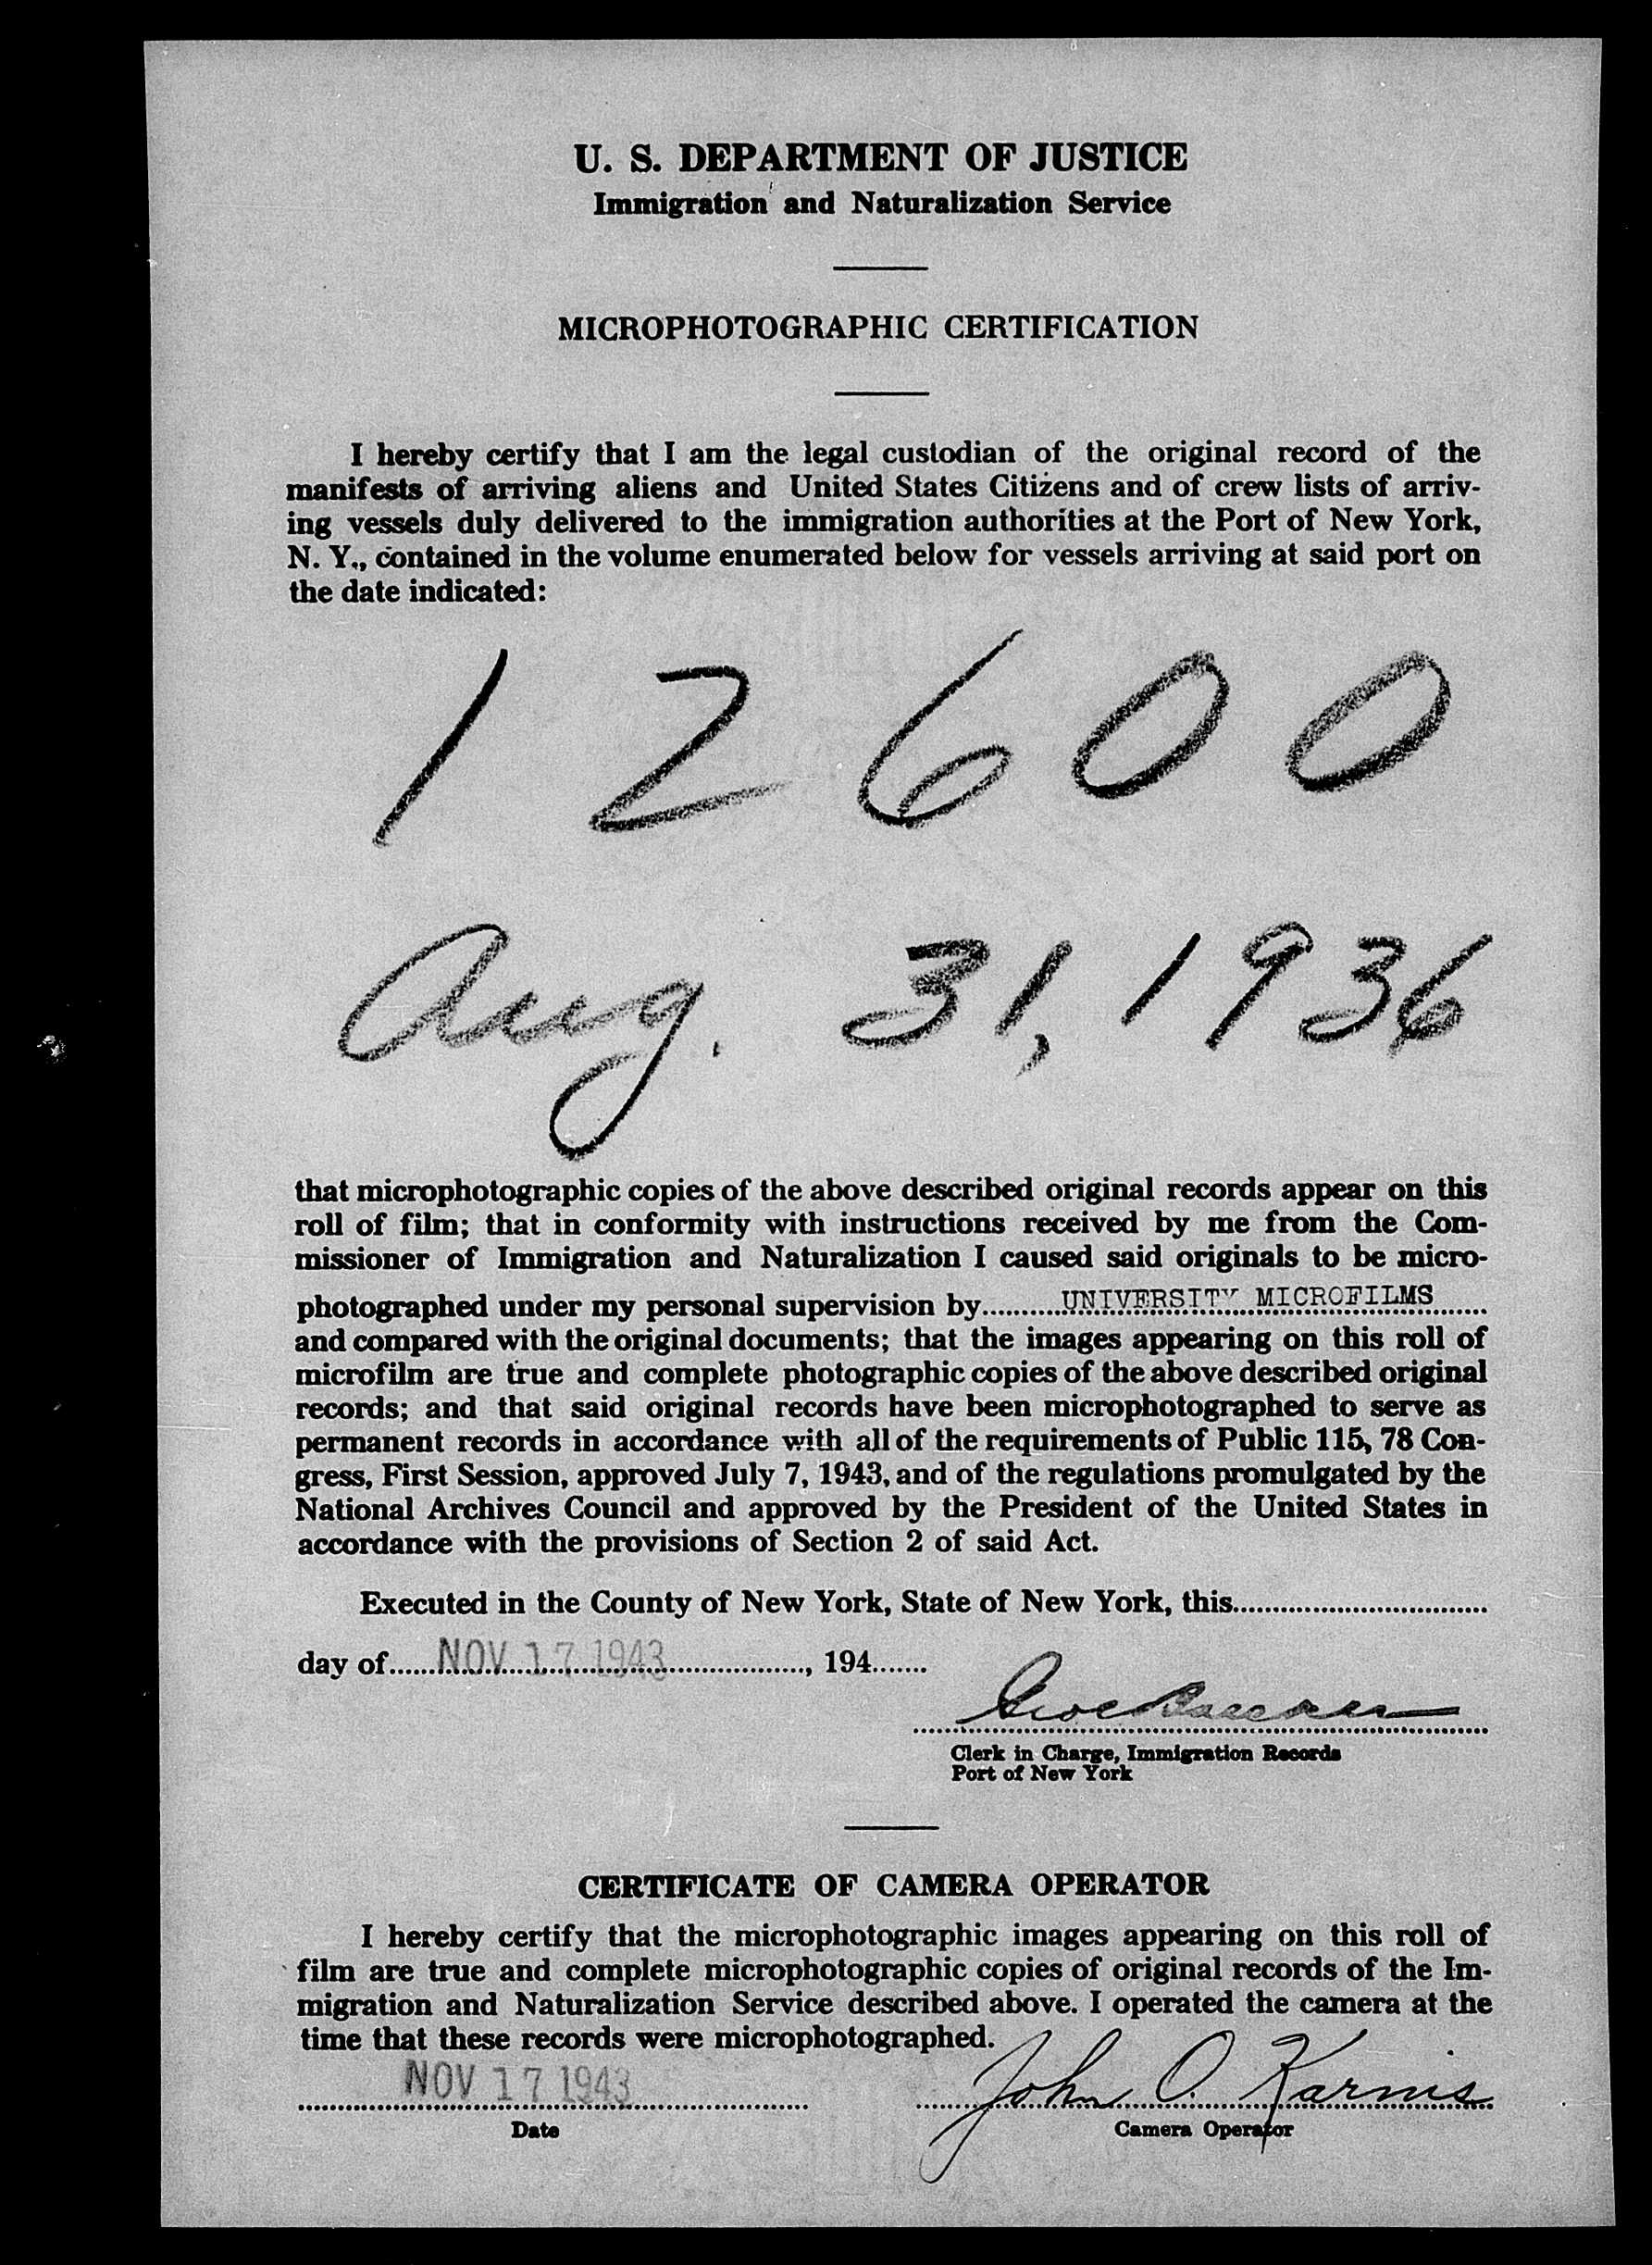 U. S. DEPARTMENT OF JUSTICE
Immigration and Naturalization Service
MICROPHOTOGRAPHIC CERTIFICATION
I hereby certify that I am the legal custodian of the original record of the
manifests of arriving aliens and United States Citizens and of crew lists of arriv-
ing vessels duly delivered to the immigration authorities at the Port of New York,
N. Y., contained in the volume enumerated below for vessels arriving at said port on
the date indicated:
12600
Aug. 31, 1936
that microphotographic copies of the above described original records appear on this
roll of film; that in conformity with instructions received by me from the Com-
missioner of Immigration and Naturalization I caused said originals to be micro-
photographed under my personal supervision by UNIVERSITY MICROFILMS
and compared with the original documents; that the images appearing on this roll of
microfilm are true and complete photographic copies of the above described original
records; and that said original records have been microphotographed to serve as
permanent records in accordance with all of the requirements of Public 115, 78 Con-
gress, First Session, approved July 7, 1943, and of the regulations promulgated by the
National Archives Council and approved by the President of the United States in
accordance with the provisions of Section 2 of said Act.
Executed in the County of New York, State of New York, this
day of NOV 17 1943, 194
Clerk in Charge, Immigration Records
Port of New York
CERTIFICATE OF CAMERA OPERATOR
I hereby certify that the microphotographic images appearing on this roll of
film are true and complete microphotographic copies of original records of the Im-
migration and Naturalization Service described above. I operated the camera at the
time that these records were microphotographed.
NOV 17 1943 John O. Karnis
Date Camera Operator